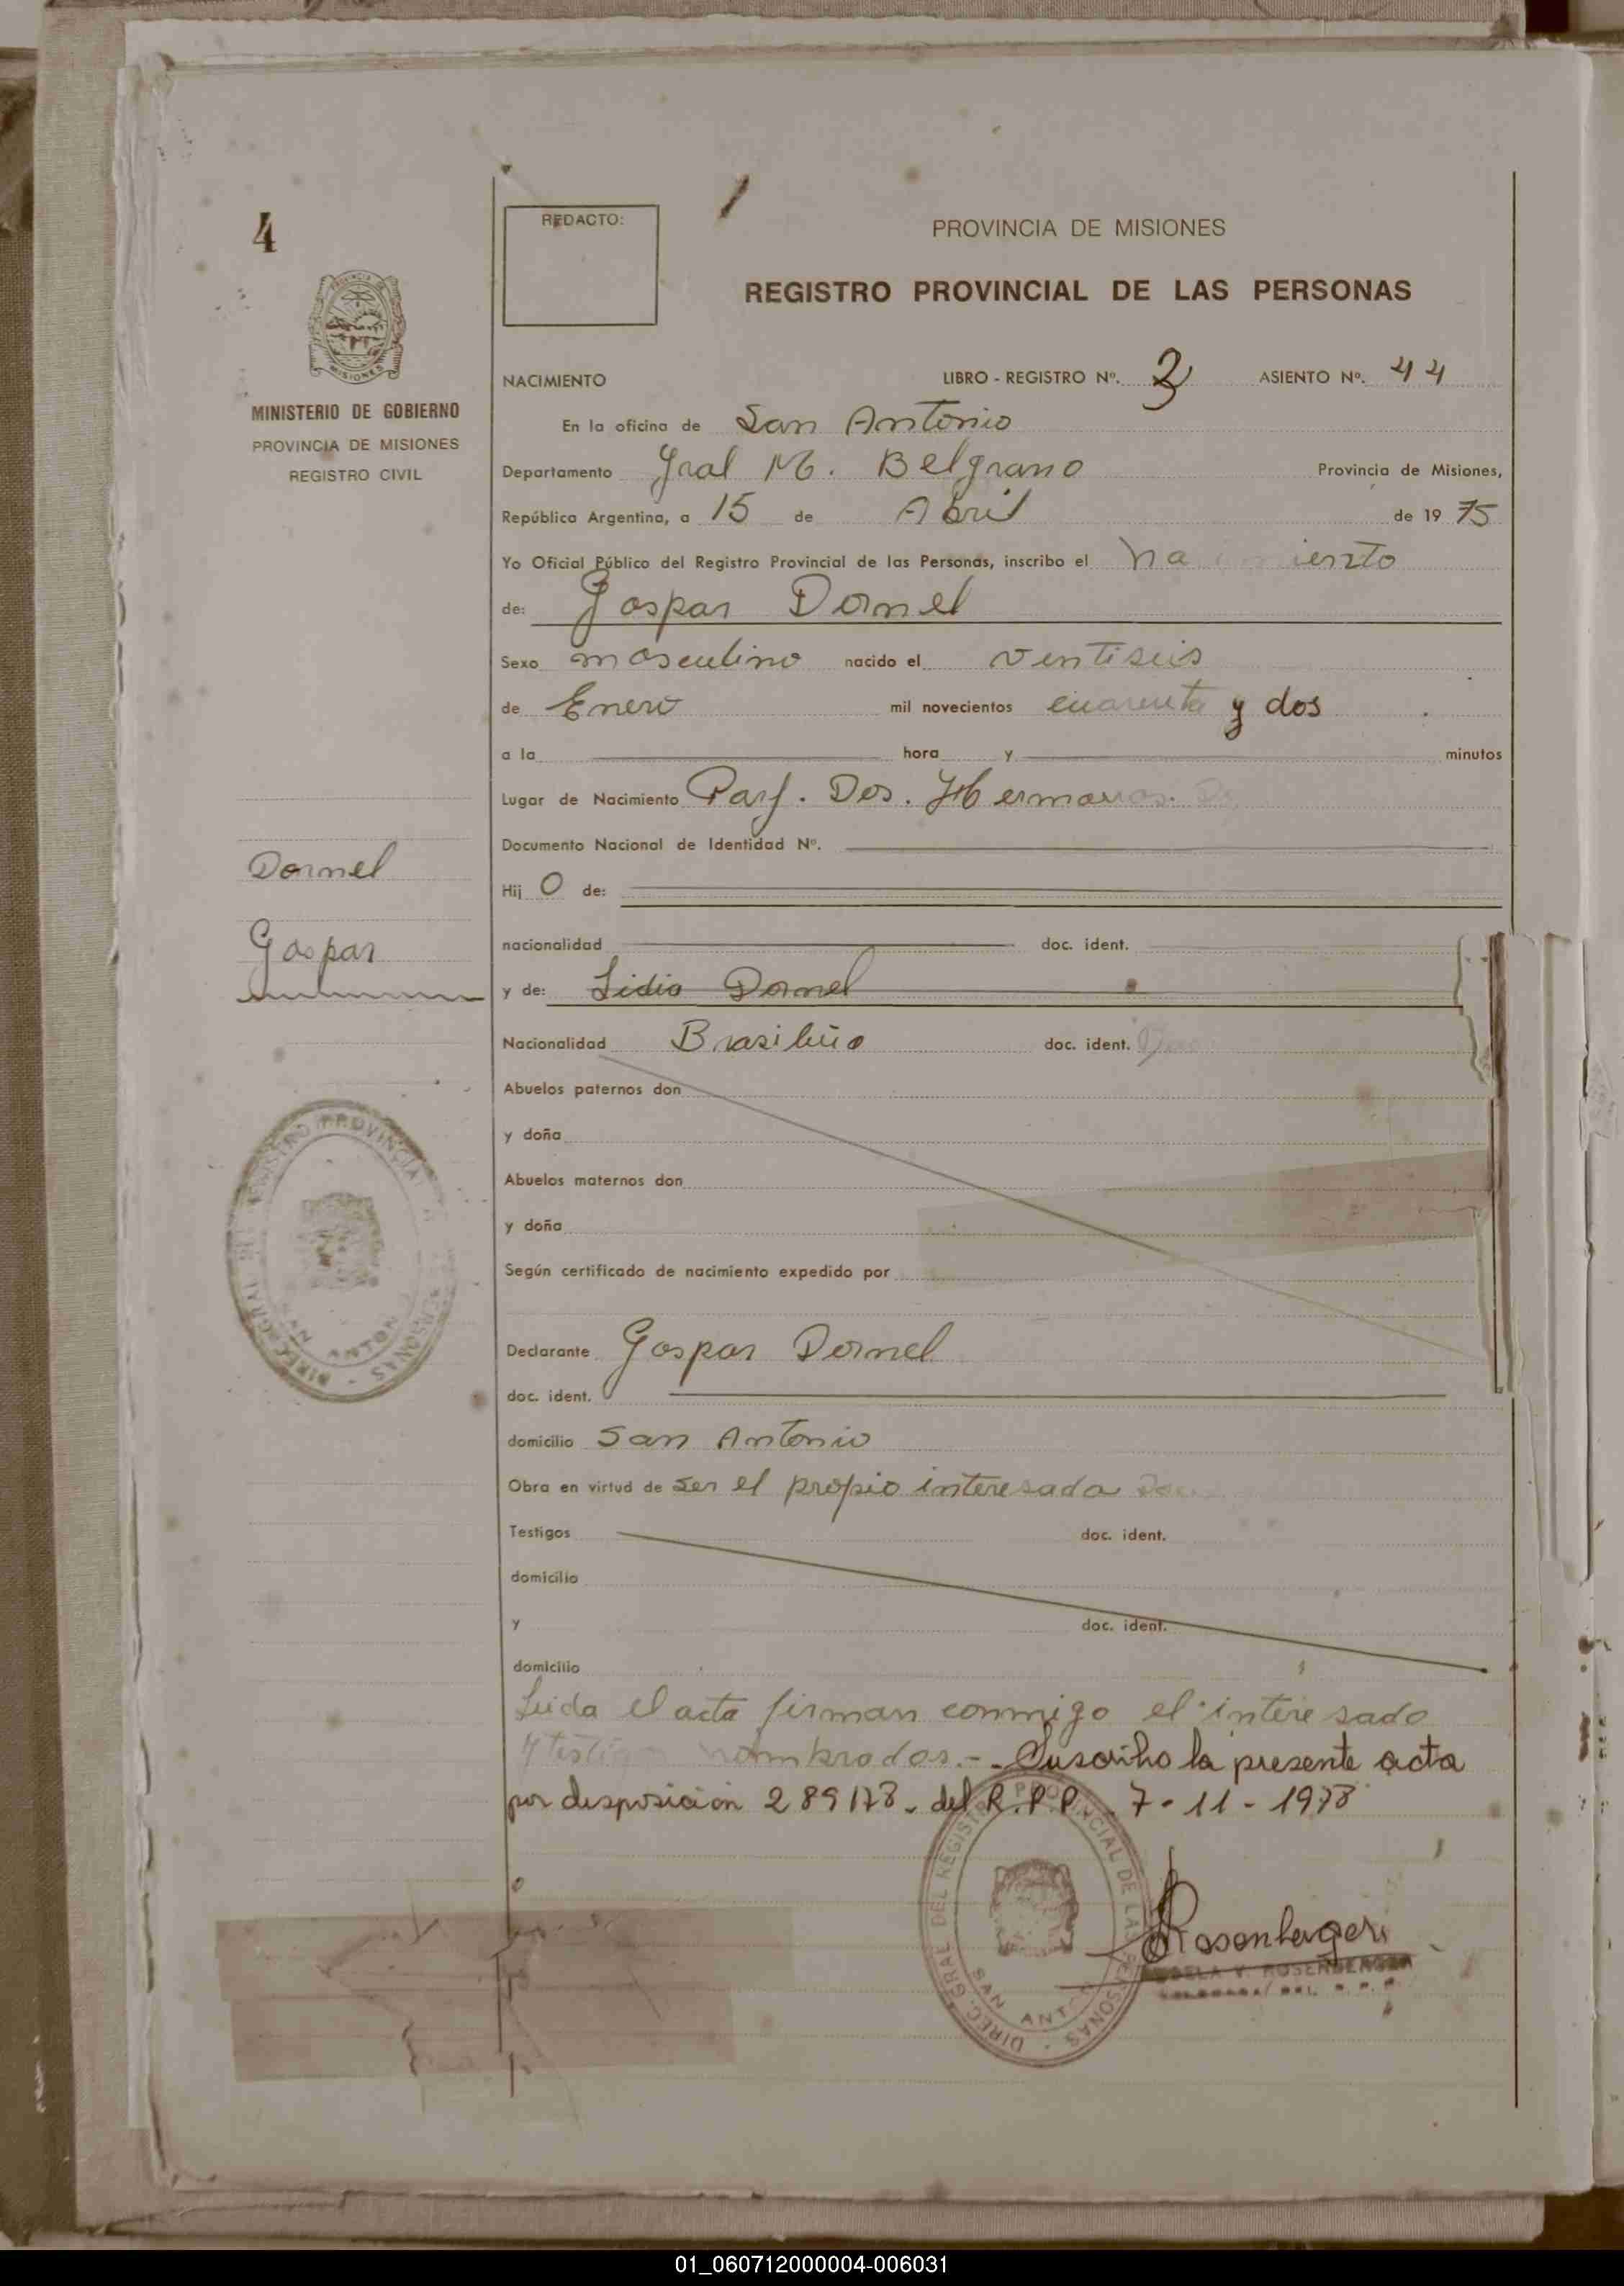 4
PROVINCIA DE MISIONES
MINISTERIO DE GOBIERNO
PROVINCIA DE MISIONES
REGISTRO CIVIL
REDACTO:
PROVINCIA DE MISIONES
REGISTRO PROVINCIAL DE LAS PERSONAS
NACIMIENTO LIBRO - REGISTRO Nº. ASIENTO Nº. 44
En la oficina de San Antonio
Departamento Gral M. Belgrano Provincia de Misiones,
República Argentina, a 15 de Abril de 19 75
Yo Oficial Público del Registro Provincial de las Personas, inscribo el
de: Gaspar Dornel
Sexo masculino nacido el ventiseis
de Enero mil novecientos cuarenta y dos
a la hora y minutos
Lugar de Nacimiento Parj. Dos. Hermanas.
Documento Nacional de Identidad Nº.
Hij o de:
nacionalidad doc. ident.
y de: Lidia Dornel
Nacionalidad doc. ident.
Abuelos paternos don
y doña
Abuelos maternos don
y doña
Según certificado de nacimiento expedido por
Declarante Gaspar Dornel
doc. ident.
domicilio San Antonio
Obra en virtud de ser el propio interesado
Testigos doc. ident.
domicilio
y doc. ident.
domicilio
Leida el acta firman conmigo el interesado
nombrados.- Suscribo la presente acta
por disposición 289178. del R.P.P. 7-11-1978
Dornel
Gaspar
DIREC. GRAL DEL REGISTRO PROVINCIAL DE LAS PERSONAS
SAN ANTONIO
DIREC. GRAL DEL REGISTRO PROVINCIAL DE LAS PERSONAS
SAN ANTONIO
Rosenberger
V. ROSENBERGER
01_060712000004-006031